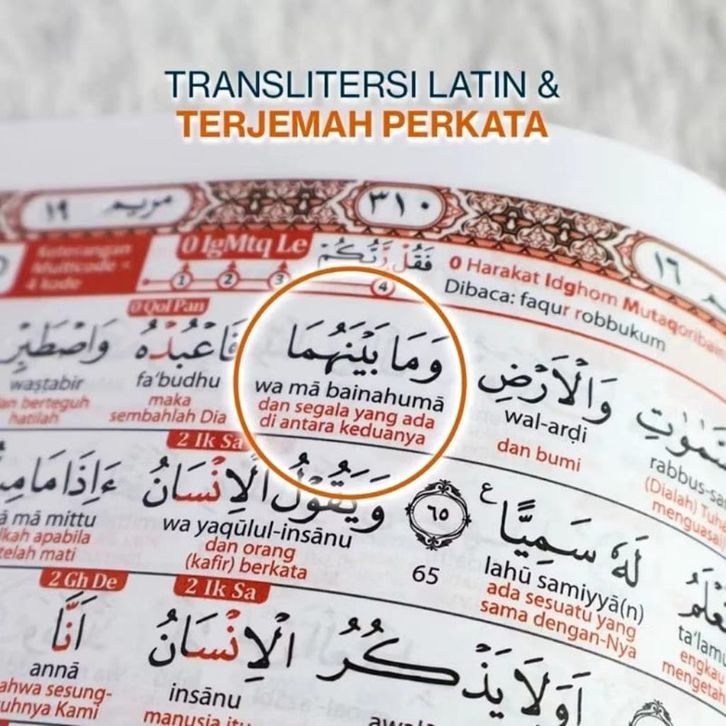 TRANSLITERSI LATIN &
TERJEMAH PERKATA
مريم ١٩
٣١٠
١٦
Keterangan
Multicode =
4 kode
0 IgMtq Le
فَقُلْ رَّبُّكُمْ
0 Harakat Idghom Mutaqoribain
Dibaca: faqur robbukum
1 2 3 4
0 Qol Pan
وَالْاَرْضِ وَمَا بَيْنَهُمَا فَاعْبُدْهُ وَاصْطَبِرْ
rabbus-sa wal-arḍi wa mā bainahumā fa‘budhu waṣtabir
(Dialah) Tu dan bumi dan segala yang ada maka an berteguh
menguasai di antara keduanya sembahlah Dia hatilah
2 Ik Sa
لَهٗ سَمِيًّا ٦٥ وَيَقُوْلُ الْاِنْسَانُ ءَاِذَا مَا
ta‘lamu lahū samiyyā(n) 65 wa yaqūlul-insānu ā mā mittu
engkau ada sesuatu yang dan orang lkah apabila
menget sama dengan-Nya (kafir) berkata telah mati
2 Ik Sa
2 Gh De
اَوَلَا يَذْكُرُ الْاِنْسَانُ اَنَّا
awal insānu annā
manusia itu ahwa sesung-
uhnya Kami